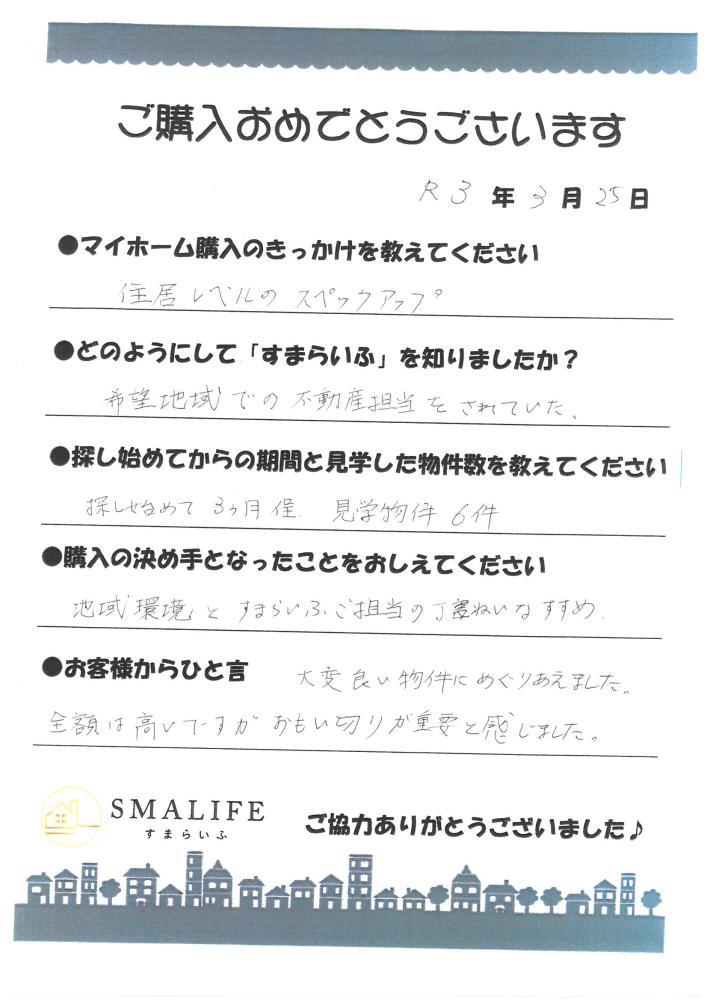 ご購入おめでとうございます
R3年3月25日
●マイホーム購入のきっかけを教えてください
住居レベルのスペックアップ。
●どのようにして「すまらいふ」を知りましたか？
希望地域での不動産担当をされていた。
●探し始めてからの期間と見学した物件数を教えてください
探し始めて 3ヶ月程. 見学物件 6件
●購入の決め手となったことをおしえてください
地域環境とすまらいふご担当の丁寧ねいなすすめ.
●お客様からひと言 大変良い物件にめぐりあえました。
全額は高いですがおもい切りが重要と感じました。
SMALIFE
すまらいふ
ご協力ありがとうございました♪